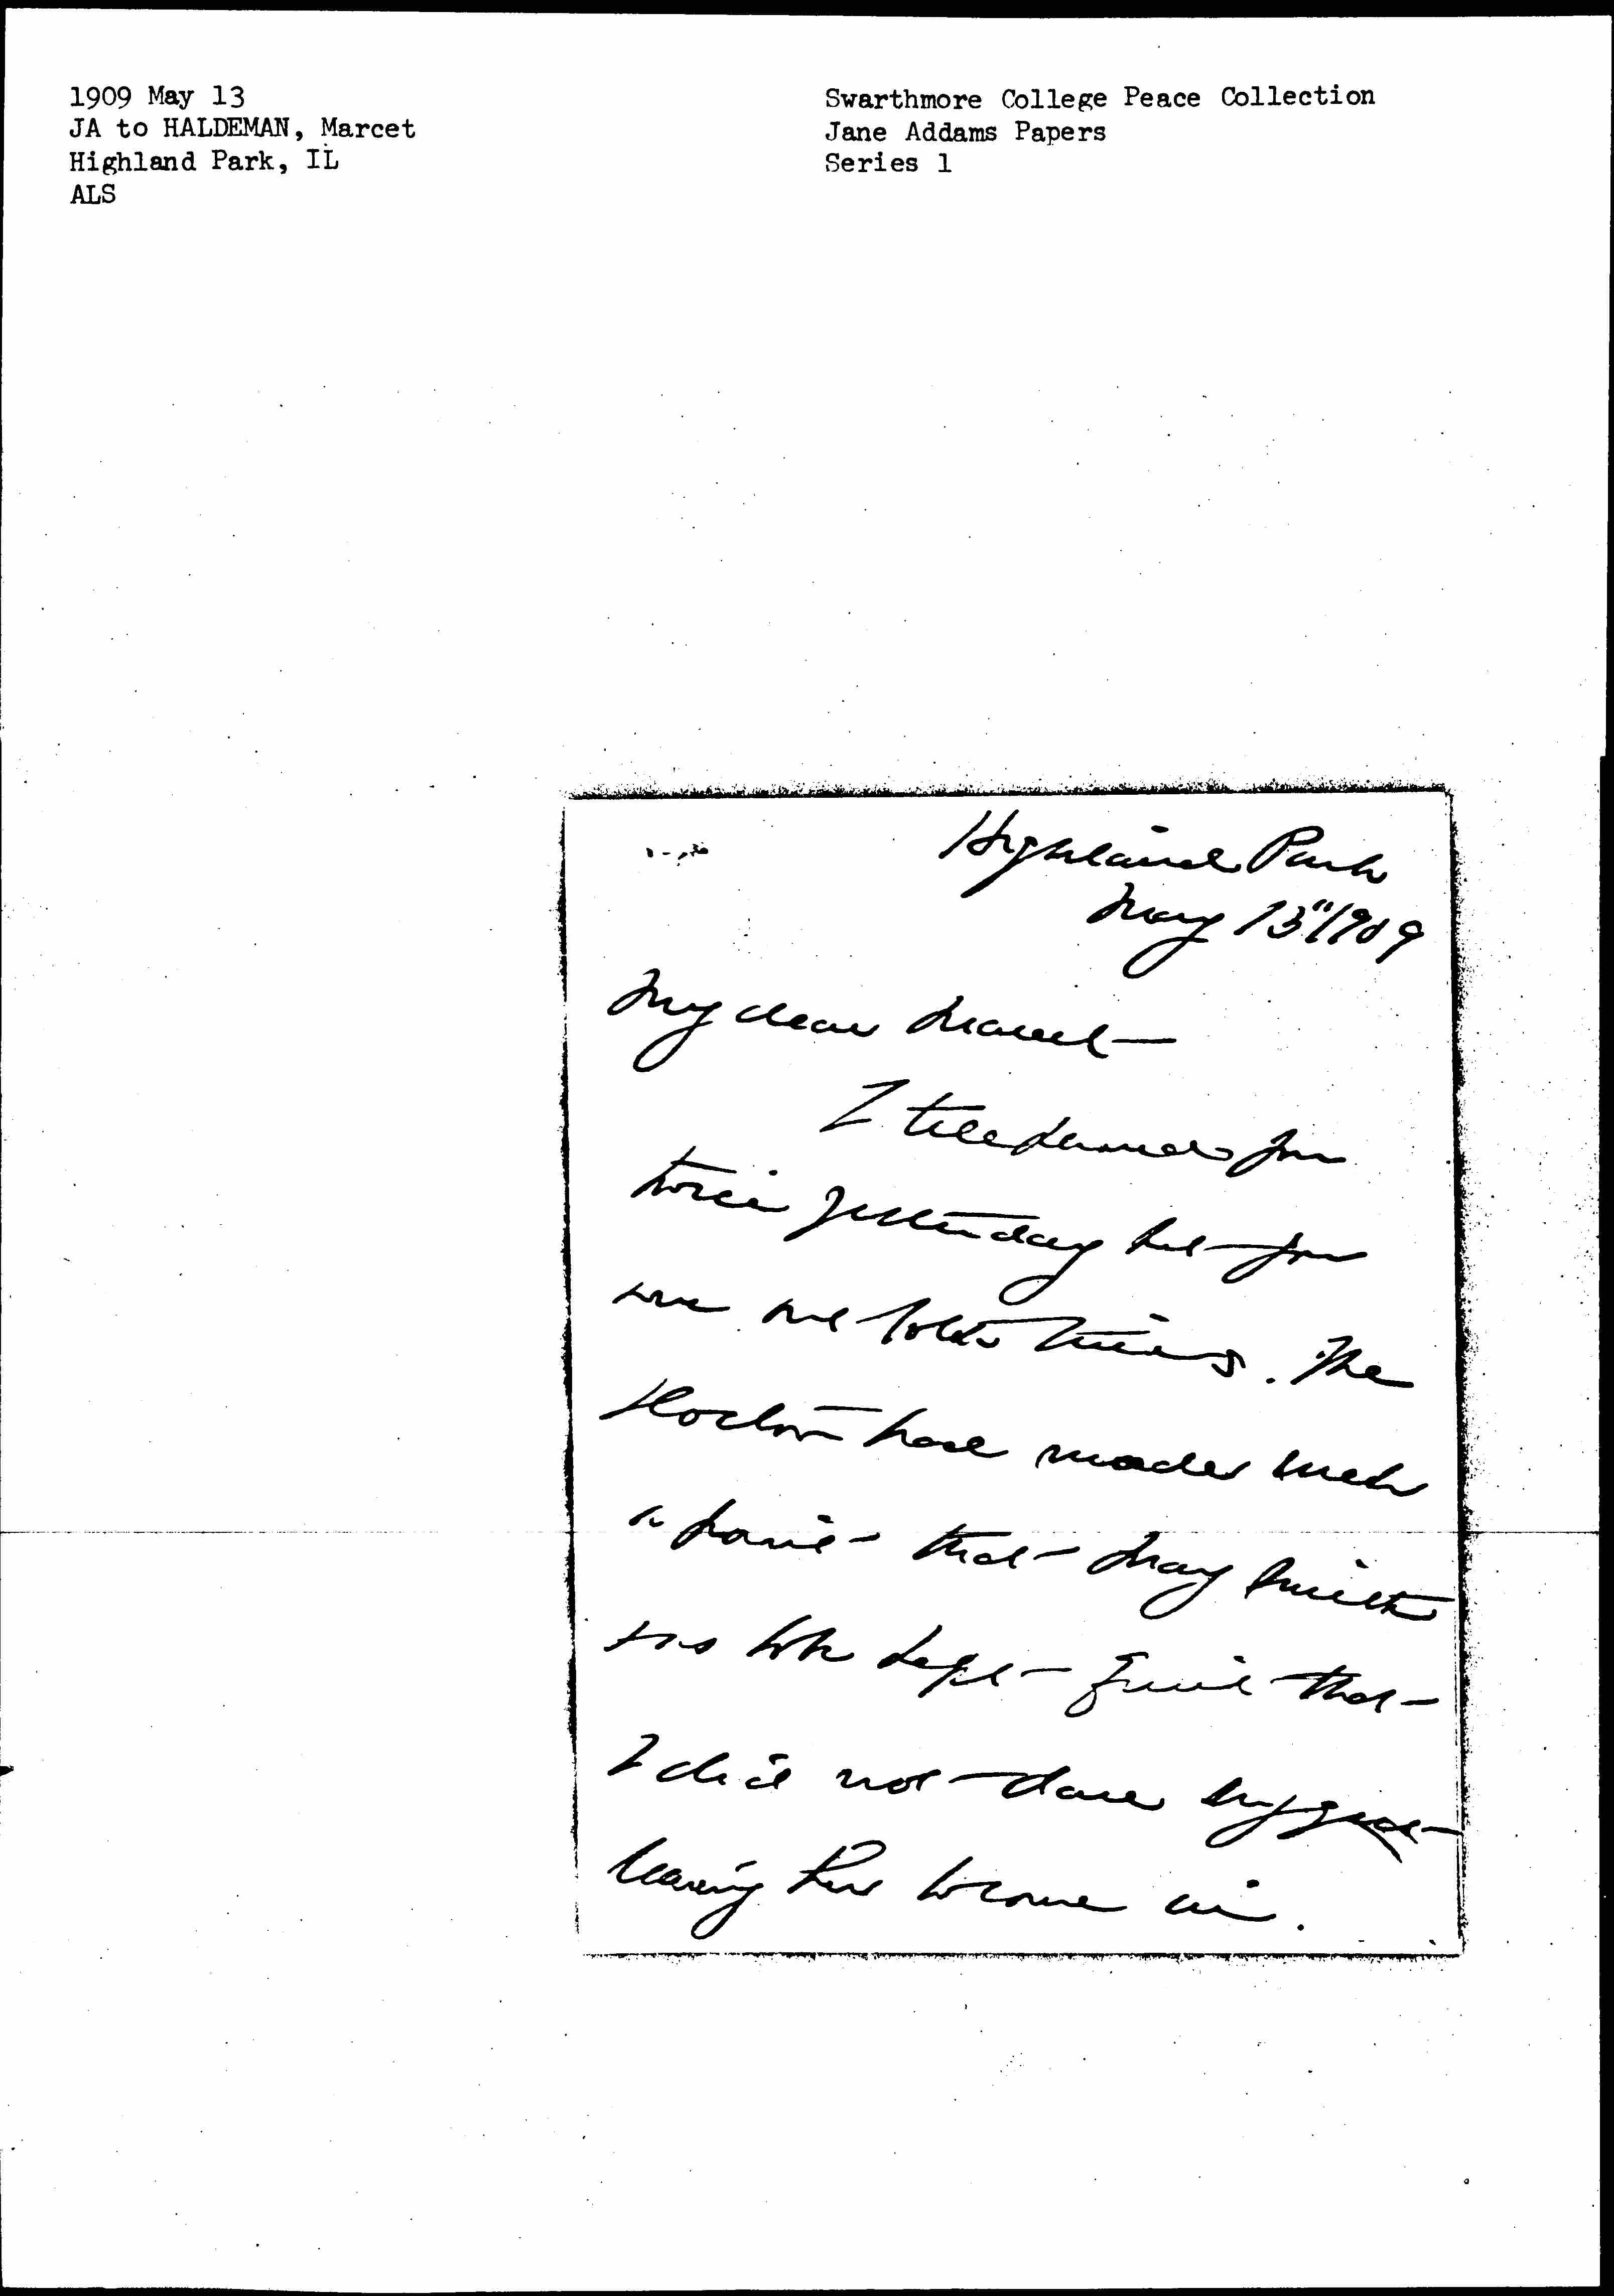 1909 May 13
JA to HALDEMAN, Marcet
Highland Park, IL
ALS
Swarthmore College Peace Collection
Jane Addams Papers
Series 1
Highland Park
May 13" 1909
My dear Marcet —
I telephoned you
twice yesterday but you
were out both times. The
Doctor had made such
a point that Mary Smith
was to be kept quiet that
I did not dare
leaving her to come in.